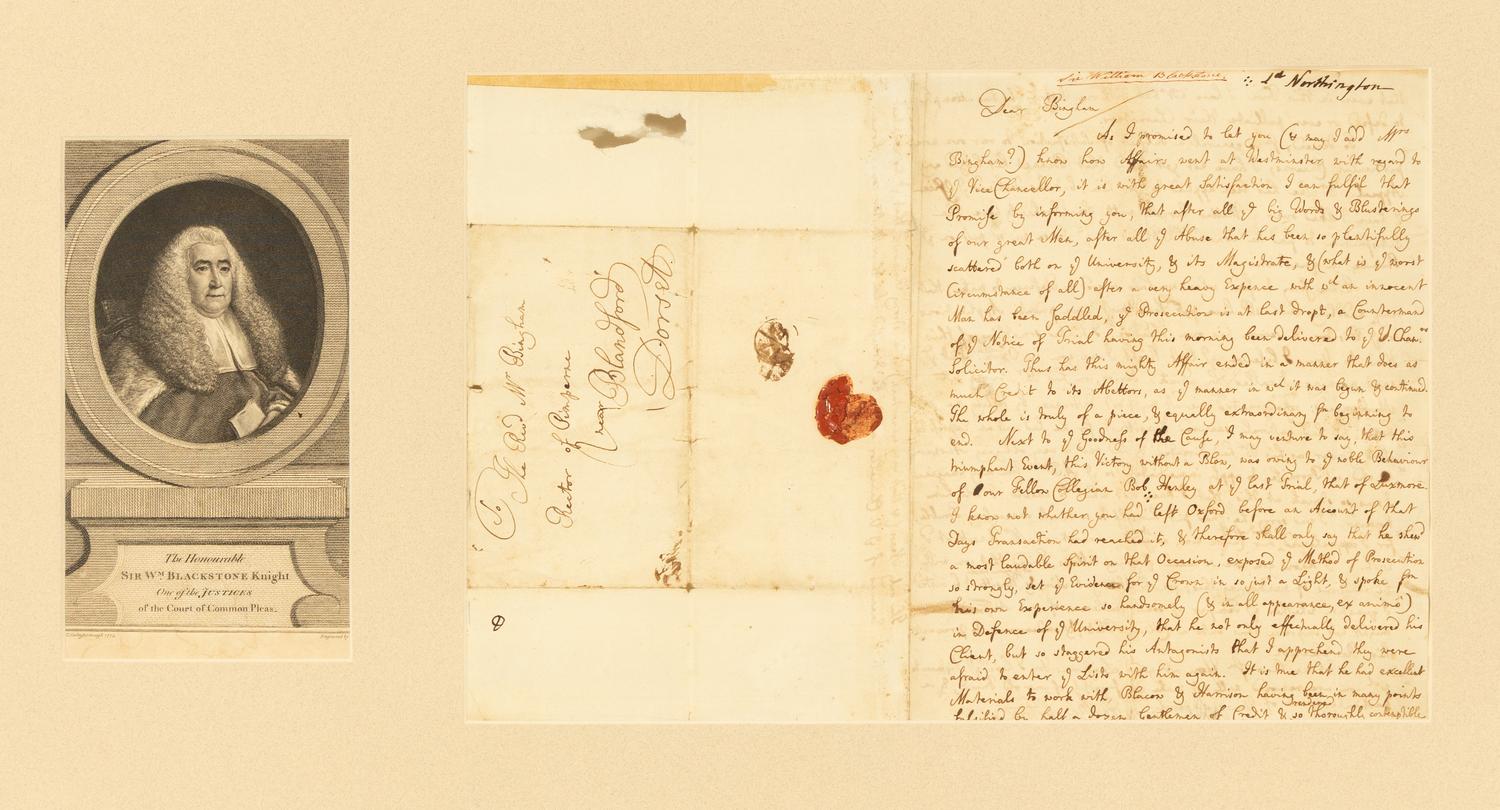 The Honourable
SIR WM BLACKSTONE Knight
One of the JUSTICES
of the Court of Common Pleas.
To
The Revd Mr Bingham
Rector of Pimperne
near Blandford
Dorset
Sir William Blackstone.
Ld Northington
Dear Bingham
As I promised to let you (& may I add Mrs
Bingham?) know how Affairs went at Westminster with regard to
ye Vice Chancellor, it is with great Satisfaction I can fulfil that
Promise by informing you, that after all ye big Words & Blusterings
of our great Men, after all ye Abuse that has been so plentifully
scattered both on ye University, & its Magistrate, & (what is ye worst
Circumstance of all) after a very heavy Expence with wch an innocent
Man has been saddled, ye Prosecution is at last dropt, a Countermand
of ye Notice of Trial having this morning been delivered to ye V. Chanrs
Solicitor. Thus has this mighty Affair ended in a manner that does as
much Credit to its Abettors, as ye manner in wch it was begun & continued.
The whole is truly of a piece, & equally extraordinary fm beginning to
end. Next to ye Goodness of the Cause, I may venture to say, that this
triumphant Event, this Victory without a Blow, was owing to ye noble Behaviour
of our Fellow Collegian Bob Henley at ye last Trial, that of Luxmore.
I know not whether you had left Oxford before an Account of that
Days Transaction had reached it, & therefore shall only say that he shewd
a most laudable Spirit on that Occasion, exposed ye Method of Prosecution
so strongly, set ye Evidence for ye Crown in so just a Light, & spoke fm
his own Experience so handsomely (& in all appearance, ex animo)
in Defence of ye University, that he not only effectually delivered his
Client, but so staggered his Antagonists that I apprehend they were
afraid to enter ye Lists with him again. It is true that he had excellent
Materials to work with, Blacow & Harrison having been in many points
falsified by half a dozen Gentlemen of Credit & so thoroughly rendered contemptible